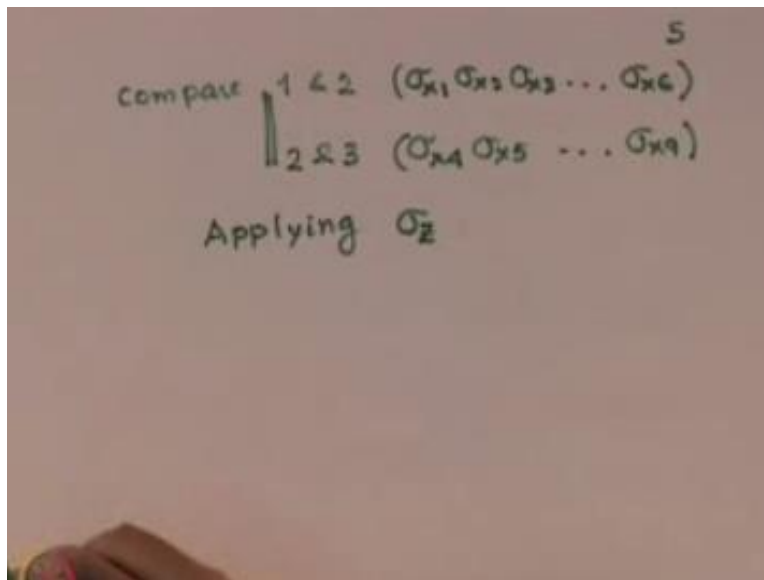 5
Compare 1 & 2 (σx1 σx2 σx3 ... σx6)
2 & 3 (σx4 σx5 ... σx9)
Applying σz